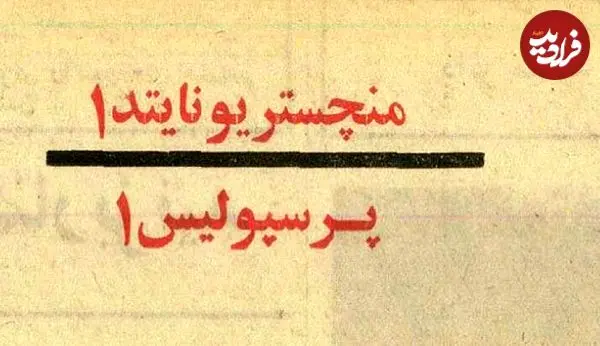 فرادید
اخبار
منچستر یونایتد ۱
پرسپولیس ۱